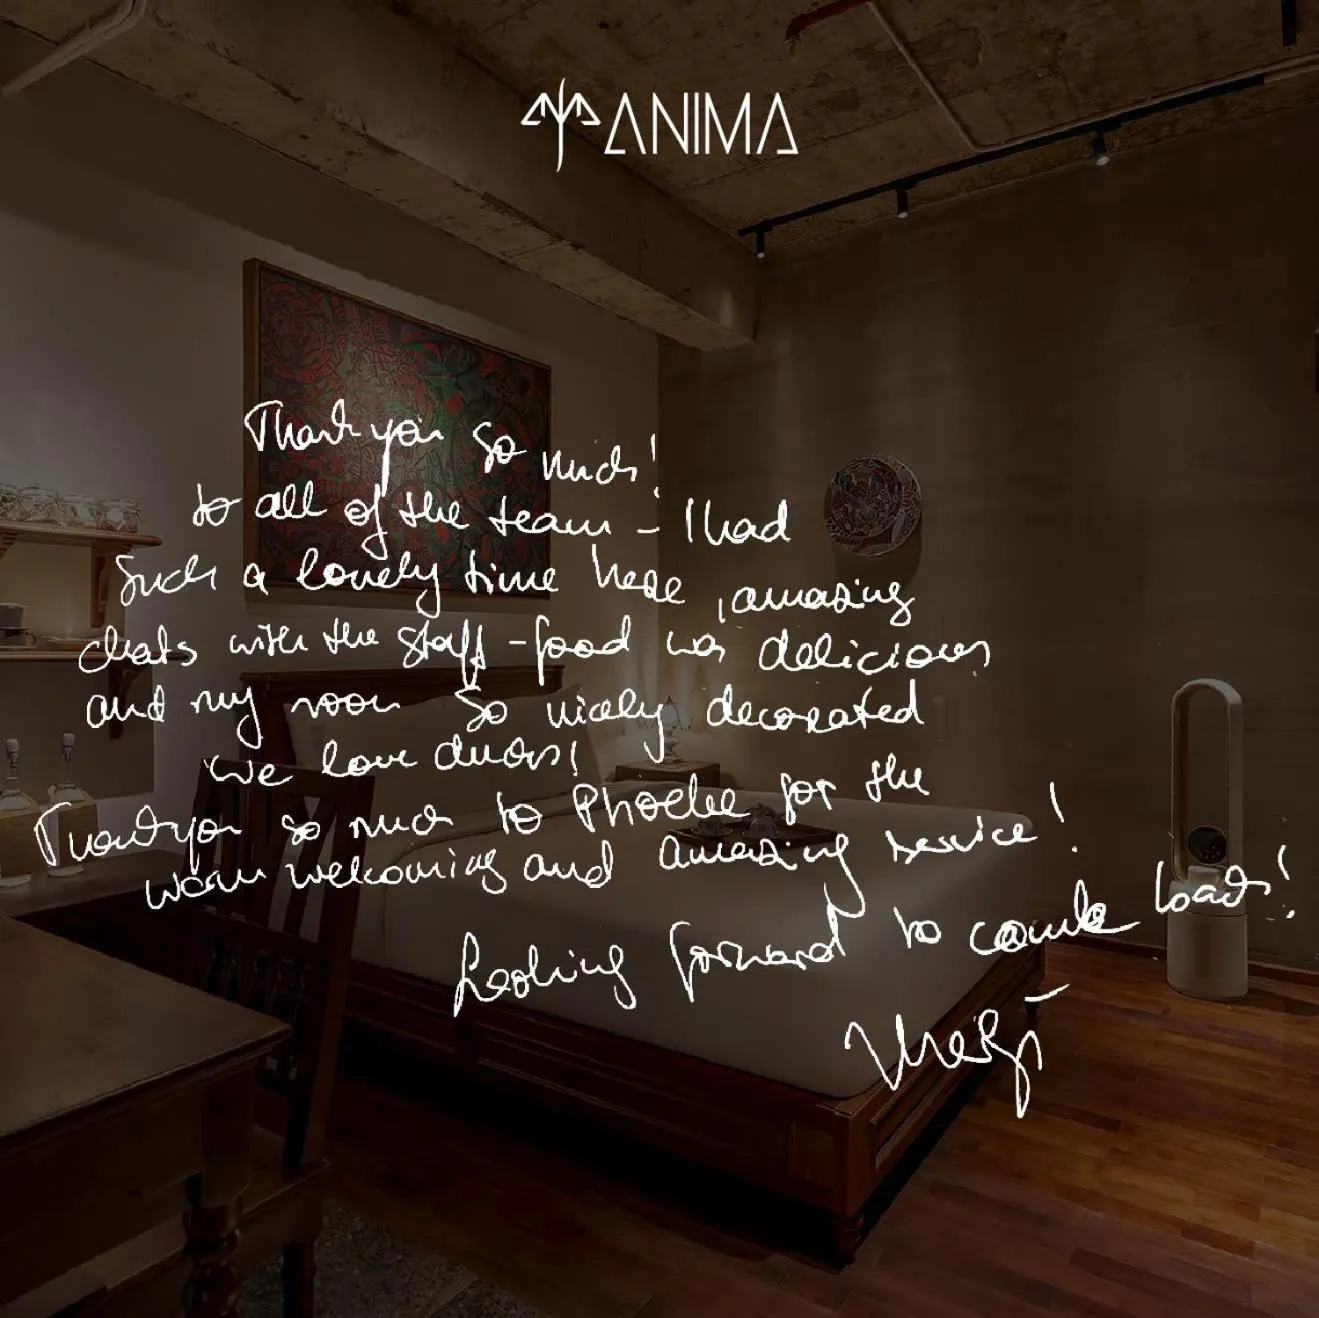 ANIMA
Thank you so much!
to all of the team - I had
such a lovely time here, amazing
chats with the staff - food was delicious
and my room so nicely decorated
We love
Thank you so much to Phoebe for the
warm welcoming and amazing service!
Looking forward to come back!